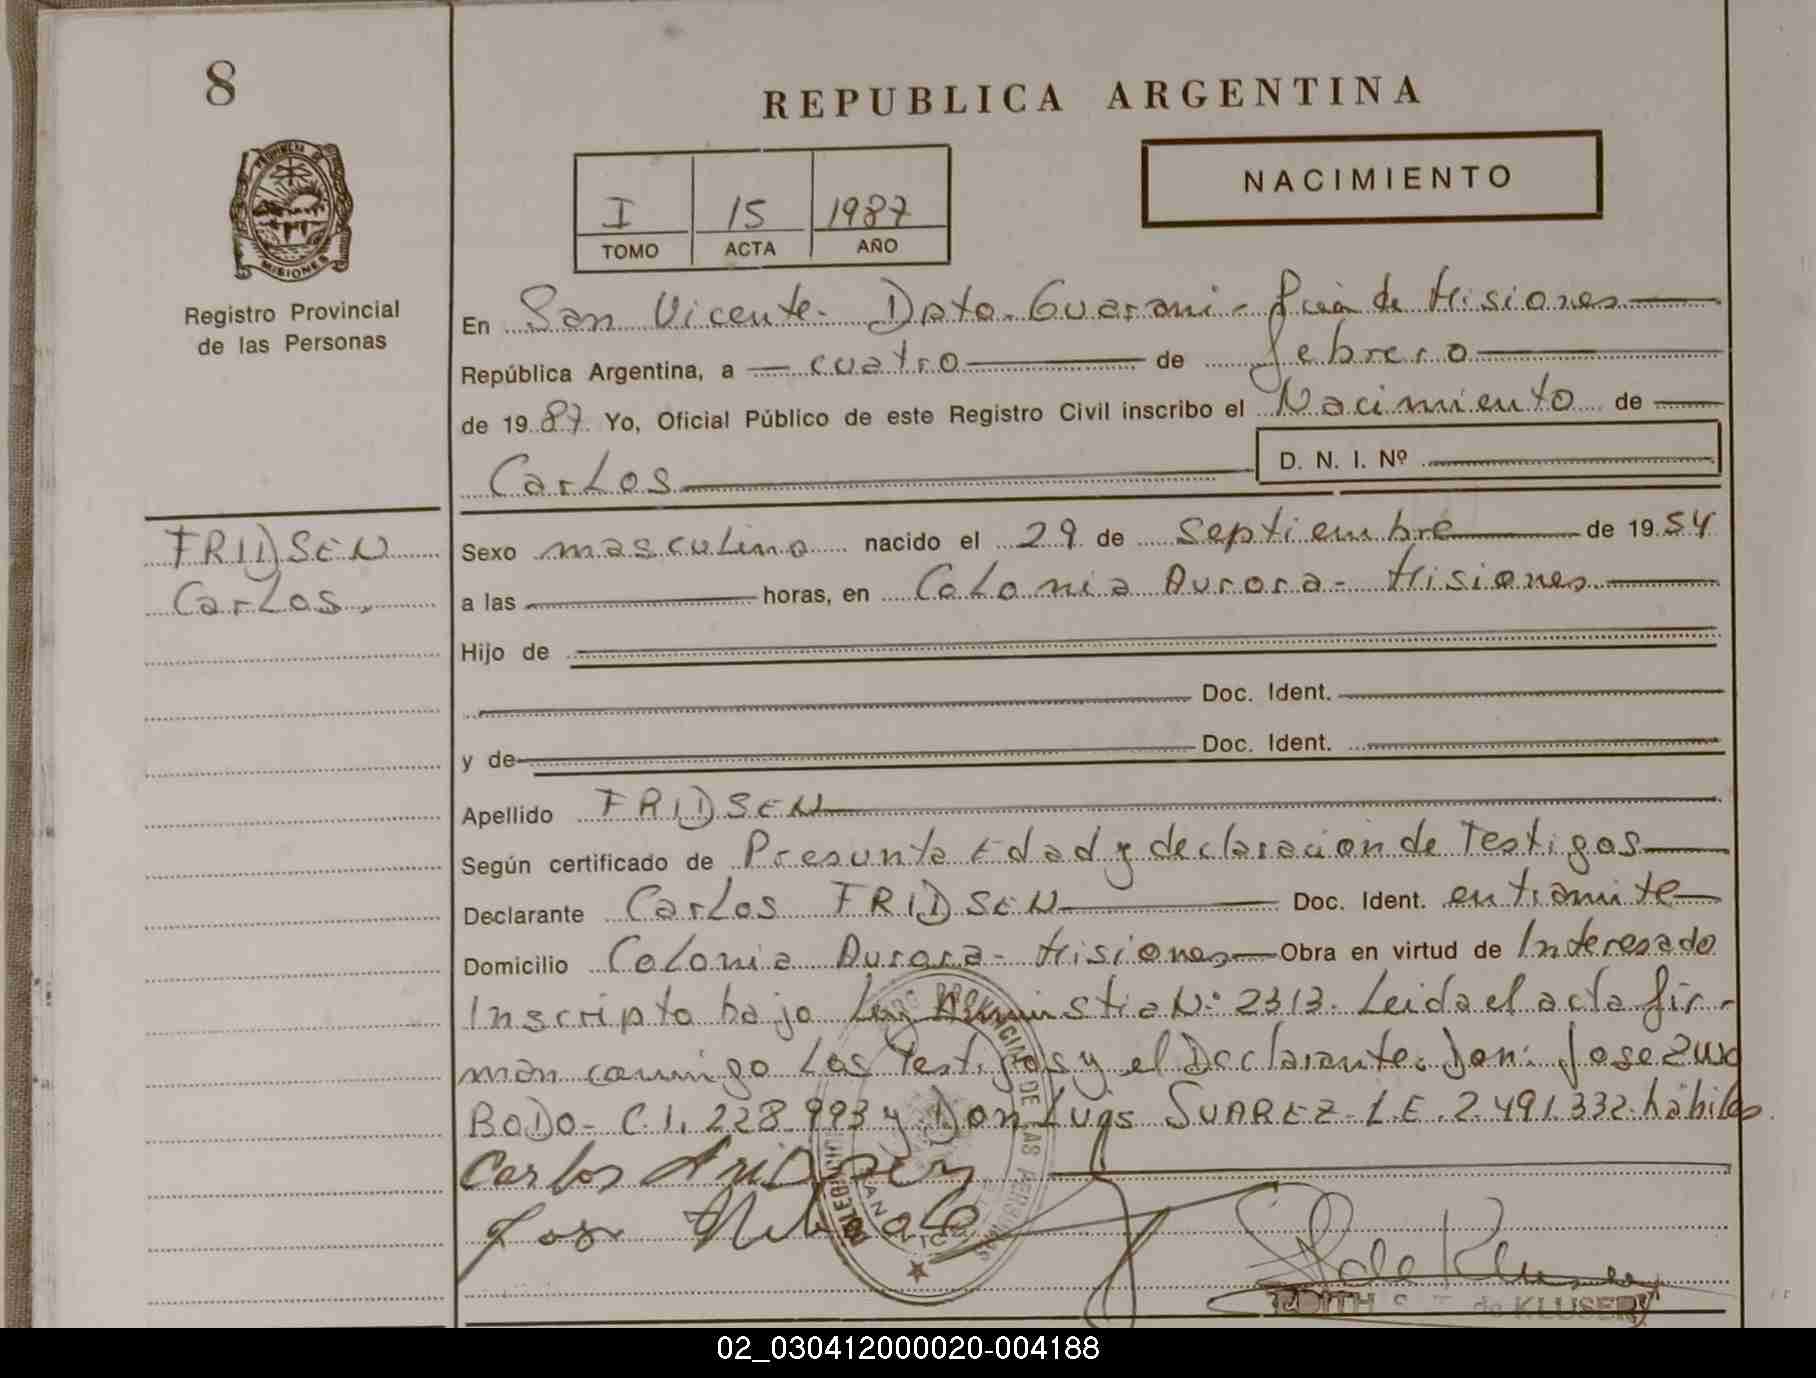 8
REPUBLICA ARGENTINA
PROVINCIA DE
MISIONES
Registro Provincial
de las Personas
I 15 1987
TOMO ACTA AÑO
NACIMIENTO
En San Vicente. Dpto. Guarani - de Misiones
República Argentina, a cuatro de febrero
de 1987 Yo, Oficial Público de este Registro Civil inscribo el Nacimiento de
Carlos
D. N. I. Nº
FRIDSEN
Carlos.
Sexo masculino nacido el 29 de septiembre de 1954
a las horas, en Colonia Aurora - Misiones
Hijo de
Doc. Ident.
y de Doc. Ident.
Apellido FRIDSEN
Según certificado de Presunta Edad y declaracion de Testigos
Declarante Carlos FRIDSEN Doc. Ident. en tramite
Domicilio Colonia Aurora - Misiones Obra en virtud de Interesado
Inscripto bajo Ley Nº 2313. Leida el acta fir-
man conmigo Los Testigos y el Declarante. Don: Jose
BODO - C.I. 228.993 y Don Luis SUAREZ - L.E. 2.491.332. habiles.
Carlos
Jose
EDITH de KLUSER
02_030412000020-004188